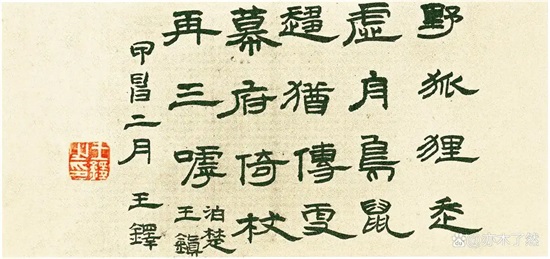 野狐狸走
虛鳥鼠
趨猶傳
幕府倚杖
再三嘑
泊楚
王鎮
甲二月 王鐸
王鐸之印